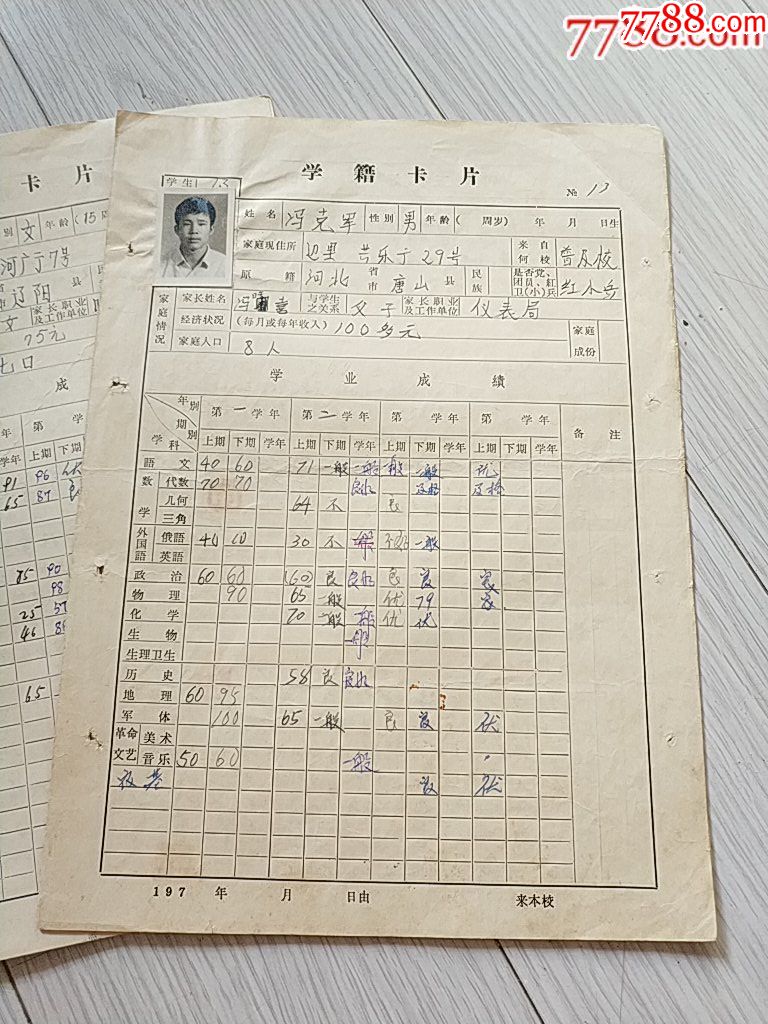 7788.com
7788.com
学籍卡片
№ 13
学生 13
姓名 冯克军 性别 男 年龄(周岁) 年 月 日生
家庭现住所 29号 来自何校 普及校
原籍 河北 省市 唐山 县 民族 是否党、团员、红卫(小)兵 红小兵
家庭情况
家长姓名 冯 喜 与学生之关系 父子 家长职业及工作单位 仪表局
经济状况 (每月或每年收入) 100多元 家庭成份
家庭人口 8人
学业成绩
年别 第一学年 第二学年 第 学年 第 学年 备注
学科 期别 上期 下期 学年 上期 下期 学年 上期 下期 学年 上期 下期 学年
語文 40 60 71 一般 一般 一般 一般 优
数学 代数 70 70 良好 及格 及格
几何 64 不 良
三角
外国語 俄語 30 不 一般 一般
英語
政治 60 60 (60) 良 良好 良 良 良
物理 90 65 一般 优 79 良
化学 70 一般 一般 优 优
生物 一般
生理卫生
历史 58 良 良好
地理 60 95
军体 100 65 一般 良 良 优
革命文艺 美术
音乐 50 60 一般
良 优
197 年 月 日由 来本校
卡片
别 女 年龄(15周
河广丁7号
市 辽阳
家长职业及工作单位
75元
七口
成
学年 上期 下期
81 96 优
65 87 良
85 90
98
25 57
46
65